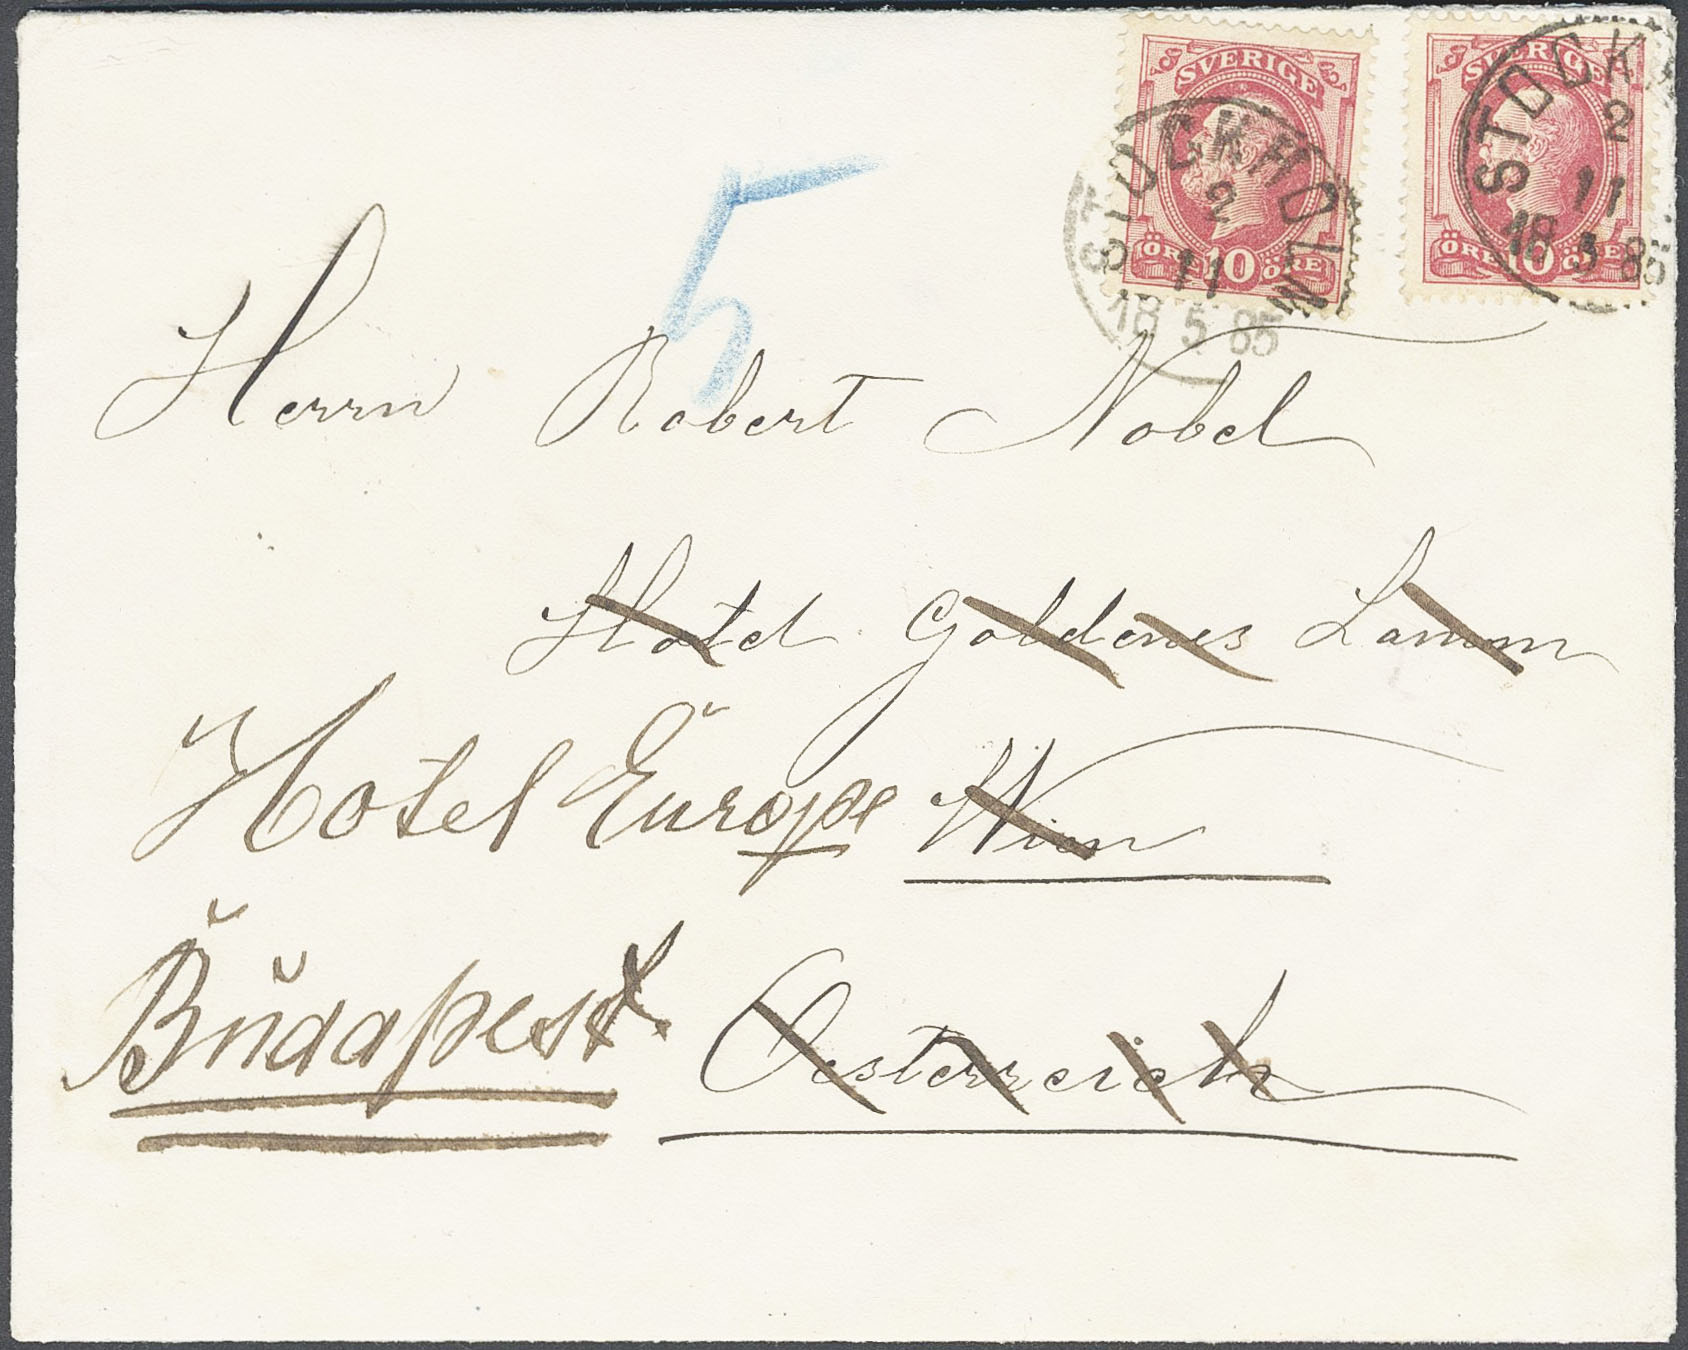 SVERIGE
ÖRE 10 ÖRE
STOCKHOLM
2
11
18 5 85
SVERIGE
ÖRE 10 ÖRE
STOCK
2
11
18 5 85
5
Herrn Robert Nobel
Hotel Goldenes Lamm
Hotel Europe Wien
Budapest. Oesterreich